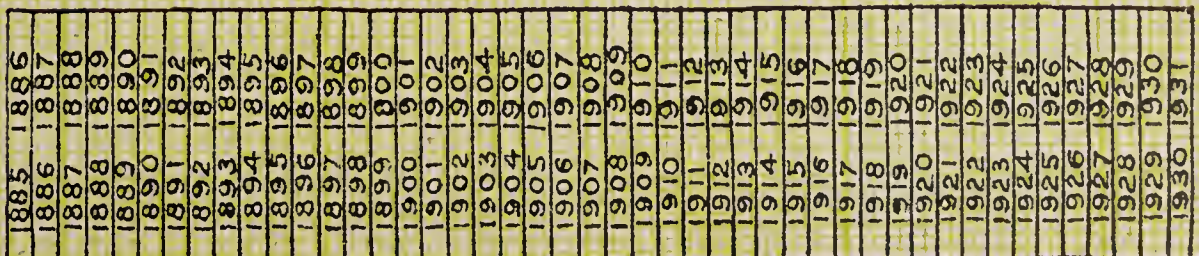 1885 1886
1886 1887
1887 1888
1888 1889
1889 1890
1890 1891
1891 1892
1892 1893
1893 1894
1894 1895
1895 1896
1896 1897
1897 1898
1898 1899
1899 1800
1900 1901
1901 1902
1902 1903
1903 1904
1904 1905
1905 1906
1906 1907
1907 1908
1908 1909
1909 1910
1910 1911
1911 1912
1912 1913
1913 1914
1914 1915
1915 1916
1916 1917
1917 1918
1918 1919
1919 1920
1920 1921
1921 1922
1922 1923
1923 1924
1924 1925
1925 1926
1926 1927
1927 1928
1928 1929
1929 1930
1930 1931